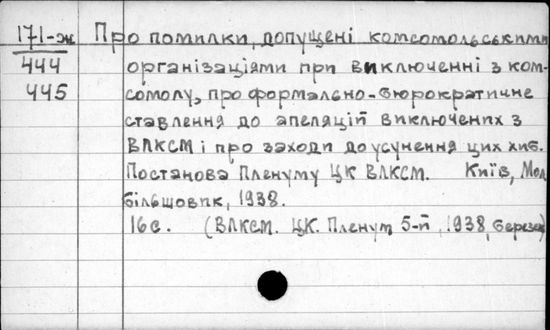 171-ж Про помилки, допущені комсомольськими
444 організаціями при виключенні з ком-
445 сомолу, про формально-бюрократичне
ставлення до апеляцій виключених з
ВЛКСМ і про заходи до усунення цих хиб.
Постанова Пленуму ЦК ВЛКСМ. Київ, Мол.
більшовик, 1938.
16с. (ВЛКСМ. ЦК. Пленум 5-й, 1938, березень)